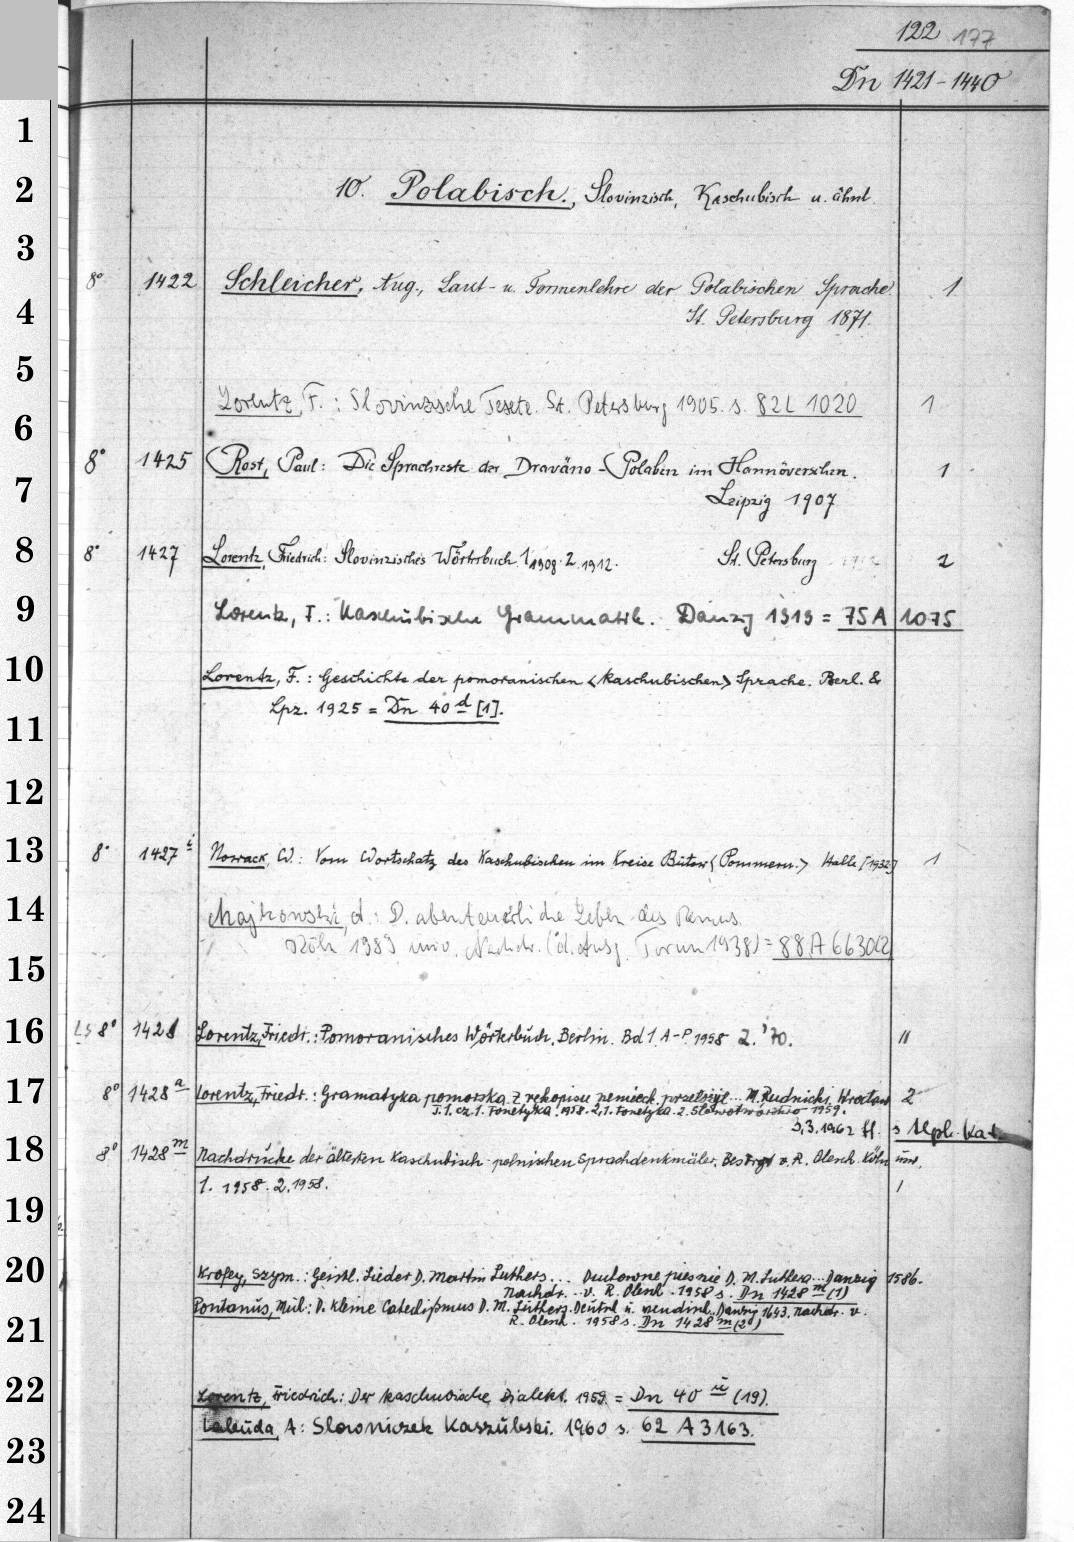 122 177
Dn 1421-1440
1
2
10. Polabisch., Slovinzisch, Kaschubisch u. ähnl.
3
8° 1422 Schleicher, Aug., Laut- u. Formenlehre der Polabischen Sprache. 1
4
St. Petersburg 1871.
5
Lorentz, F.: Slovinzische Texte. St. Petersburg 1905. s. 82 L 1020 1
6
8° 1425 Rost, Paul: Die Sprachreste der Draväno-Polaben im Hannöverschen. 1
7
Leipzig 1907
8
8° 1427 Lorentz, Friedrich: Slovinzisches Wörterbuch. 1 1908. 2. 1912. St. Petersburg 2
9
Lorentz, F.: Kaschubische Grammatik. Danzig 1919 = 75 A 1075
10
Lorentz, F.: Geschichte der pomoranischen <kaschubischen> Sprache. Berl. &
Lpz. 1925 = Dn 40 d [1].
11
12
13
8° 1427 i Nowack, W.: Vom Wortschatz des Kaschubischen im Kreise Bütow <Pommern.> Halle [1932] 1
14
Majkowski, A.: D. abenteuerliche Leben des Remus.
Köln 1989 Nachdr. (d. Ausg. Torun 1938) = 88 A 6630(2
15
16
LS 8° 1428 Lorentz, Friedr.: Pomoranisches Wörterbuch. Berlin. Bd 1. A-P. 1958 2. '70. 11
17
8° 1428 a Lorentz, Friedr.: Gramatyka pomorska. Z rękopisu niemieck. przełożył... M. Rudnicki. Wrocław 2
T. 1. cz. 1. Fonetyka. 1958. 2,1. Fonetyka. 2. Słowotwórstwo 1959.
3,3. 1962 ff. s Alph. Kat.
18
8° 1428 m Nachdrucke der ältesten kaschubisch-polnischen Sprachdenkmäler. Besorgt v. R. Olesch. Köln usw.
1. 1958. 2. 1958. 1
19
20
Krofey, Szym.: Geistl. Lieder D. Martin Luthers... Duchowne piesnie D. M. Luthera... Danzig 1586.
Nachdr. v. R. Olesch. 1958 s. Dn 1428 m (1)
Pontanus, Mich: D. kleine Catechißmus D. M. Luthers. Deutsch u. wendisch. Danzig 1643. Nachdr. v.
21
R. Olesch. 1958 s. Dn 1428 m (2)
22
Lorentz, Friedrich: Der kaschubische Dialekt. 1959. = Dn 40 (19).
Labuda, A: Słowniczek Kaszubski. 1960 s. 62 A 3163.
23
24